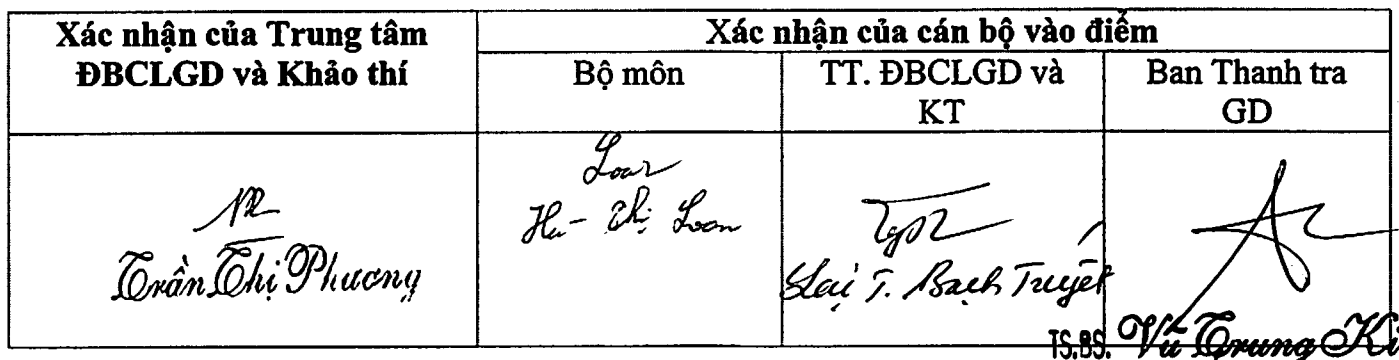 Xác nhận của Trung tâm
ĐBCLGD và Khảo thí
Xác nhận của cán bộ vào điểm
Bộ môn
TT. ĐBCLGD và
KT
Ban Thanh tra
GD
Trần Thị Phương
Loan
Thị Loan
Lại T. Bạch Tuyết
TS.BS. Vũ Trung